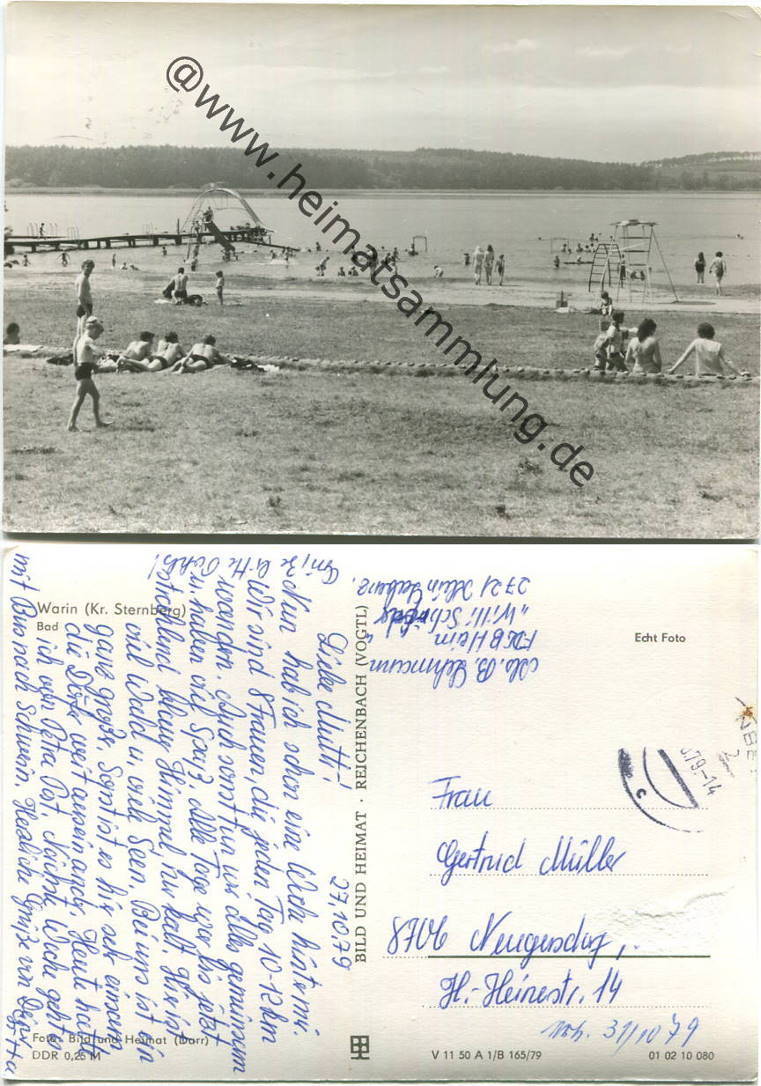 @www.heimatsammlung.de
Warin (Kr. Sternberg)
Bad
27.10.79
Liebe Mutti!
Nun hab ich schon eine Woche hinter mir.
Wir sind 8 Frauen, die jeden Tag 10-12 km
wandern. Auch sonst tun wir alles gemeinsam
u. haben viel Spaß. Alle Tage war bis jetzt
blauer Himmel nur kalt. Hier ist
viel Wald u. viele Seen. Bei uns ist ein
ganz großer. Sonst ist es hier sehr einsam
die Dörfer weit auseinander. Heute hatte
ich von Petra Post. Nächste Woche geht's
mit Bus nach Schwerin. Herzliche Grüße von Deiner
Foto: Bild und Heimat (Darr)
DDR 0,25 M
BILD UND HEIMAT · REICHENBACH (VOGTL)
Abs. B. Lehmann
FDGB Heim
"Willi Schröder"
2721 Klein Labenz
Echt Foto
.79.-14
c
Frau
Gertrud Müller
8706 Neugersdorf,
H.-Heinestr. 14
31/10 79
V 11 50 A 1/B 165/79
01 02 10 080